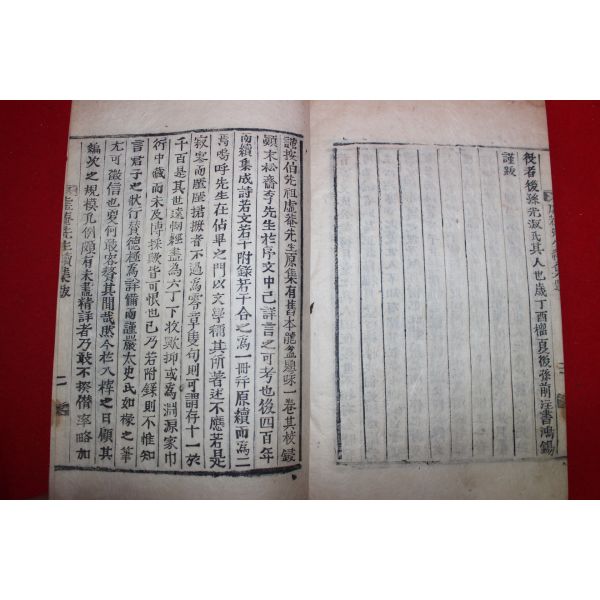 後者後孫光淑氏其人也歲丁酉榴夏後孫前注書鴻錫
謹跋
謹按伯先祖虛菴先生原集有舊本龍盆題咏一卷其校鋟
顚末松齋李先生於序文中已詳言之可考也後四百年
而續集成詩若文若干附錄若干合之為一冊幷原續而為二
焉嗚呼先生在佔畢之門以文學稱其所著述不應若是
寂寥而歷歷捃摭者不過為零章隻句則可謂存十一於
千百是其世遠經盡為六丁下收歟抑或為淵源家巾
衍中藏而未及博採歟皆可恨也已乃若附錄則不惟知
言君子之狀行贊德極為詳備而謹嚴太史氏如椽之筆
尤可徵信也更何容贅其間哉然今於入梓之日顧其
編次之規模凡例頗有未盡精詳者乃敢不揆僭率略加
虛菴先生續集跋 二